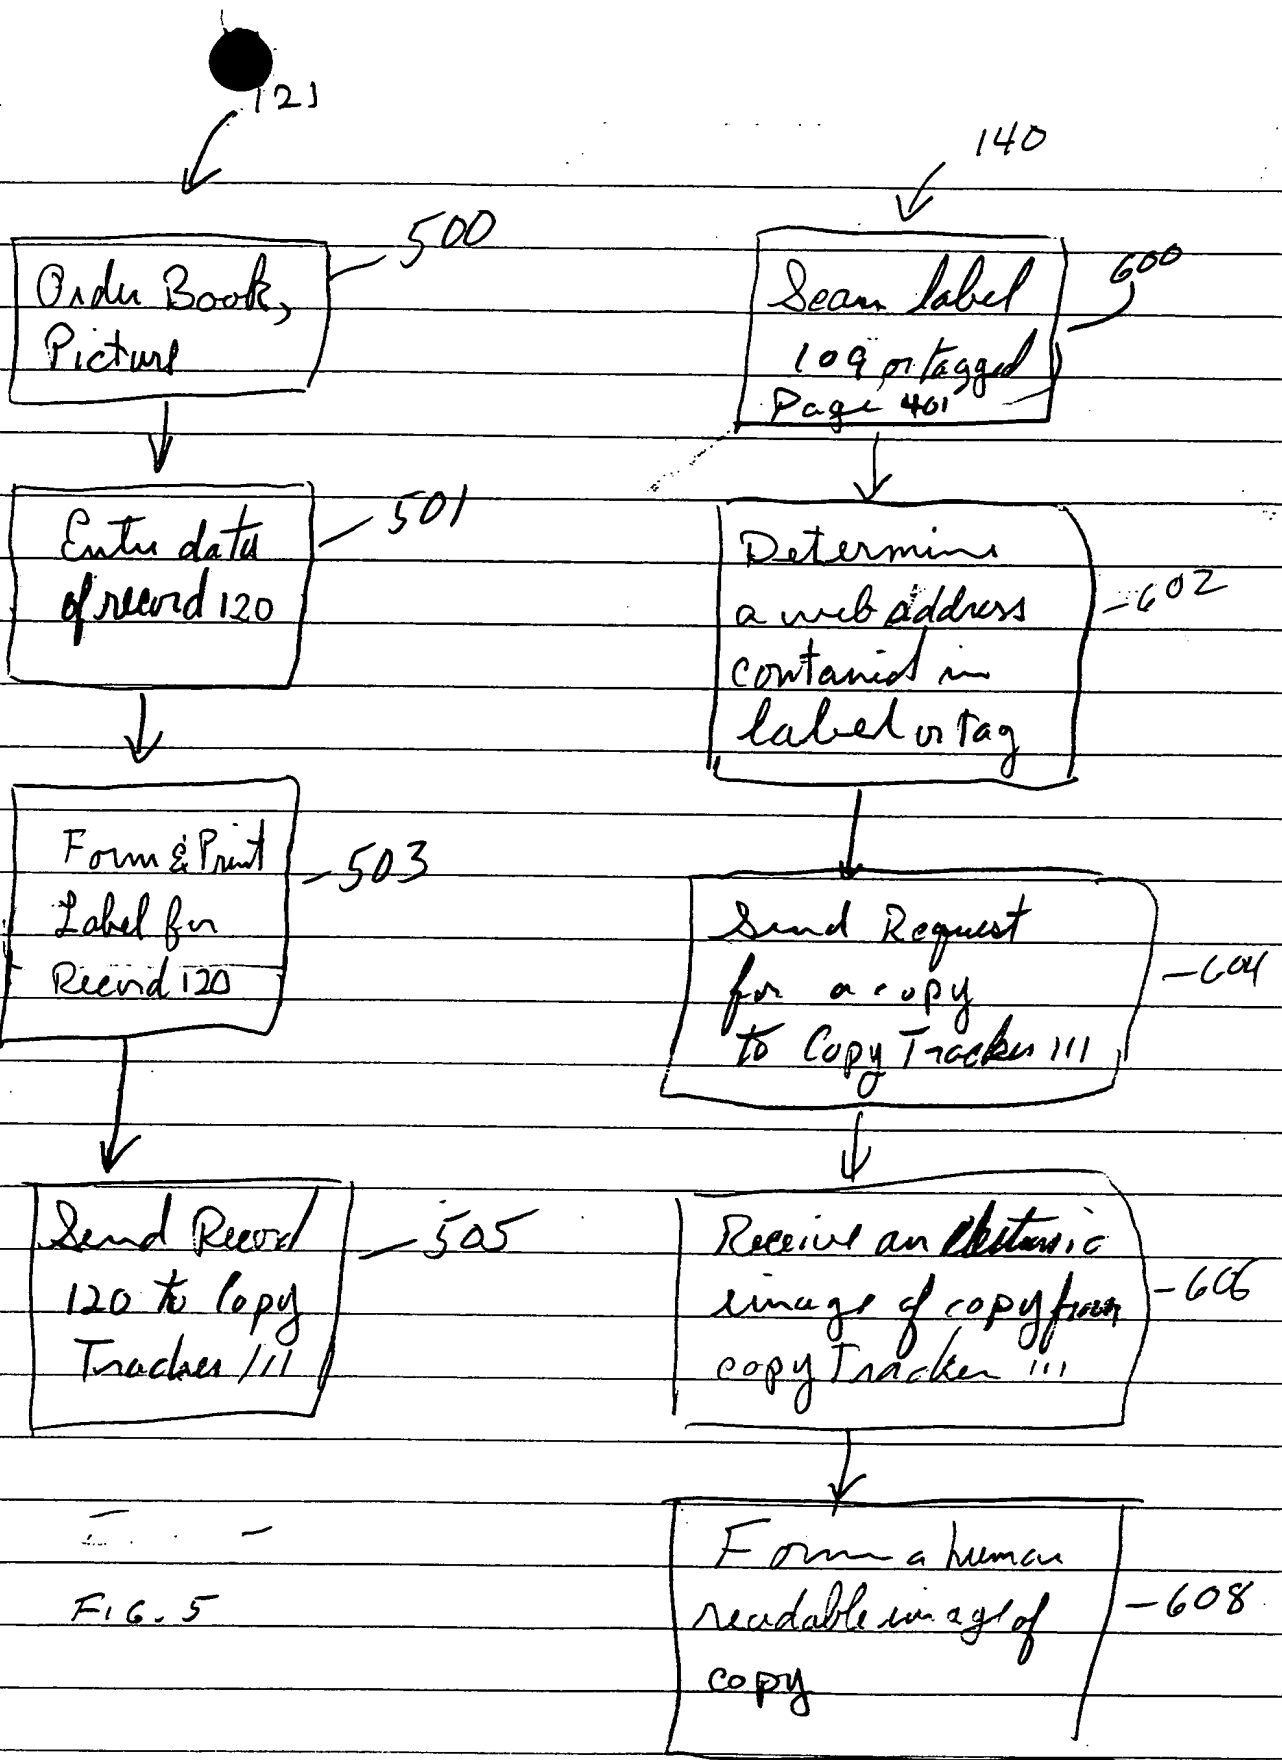 121
500
Order Book,
Picture
501
Enter data
of record 120
Form & Print
Label for
Record 120
503
Send Record
120 to Copy
Tracker 111
505
FIG. 5
140
600
Scan label
109 or tagged
Page 401
Determine
a web address
contained in
label or tag
602
Send Request
for a copy
to Copy Tracker 111
604
Receive an electronic
image of copy from
copy Tracker 111
606
Form a human
readable image of
copy
608